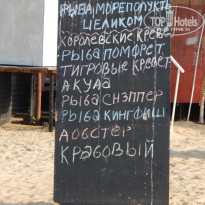 РЫБА МОРЕПОПУКТЬ
ЦЕЛИКОМ
КОРОЛЕВСКИЕ КРЕВ
РЫБА ПОМФРЕТ
ТИГРОВЫЕ КРЕВЕТ
АКУЛА
РЫБА СНЭППЕР
РЫБА КИНГФИШ
ЛОБСТЕР
КРАБОВЫЙ
TopHotels